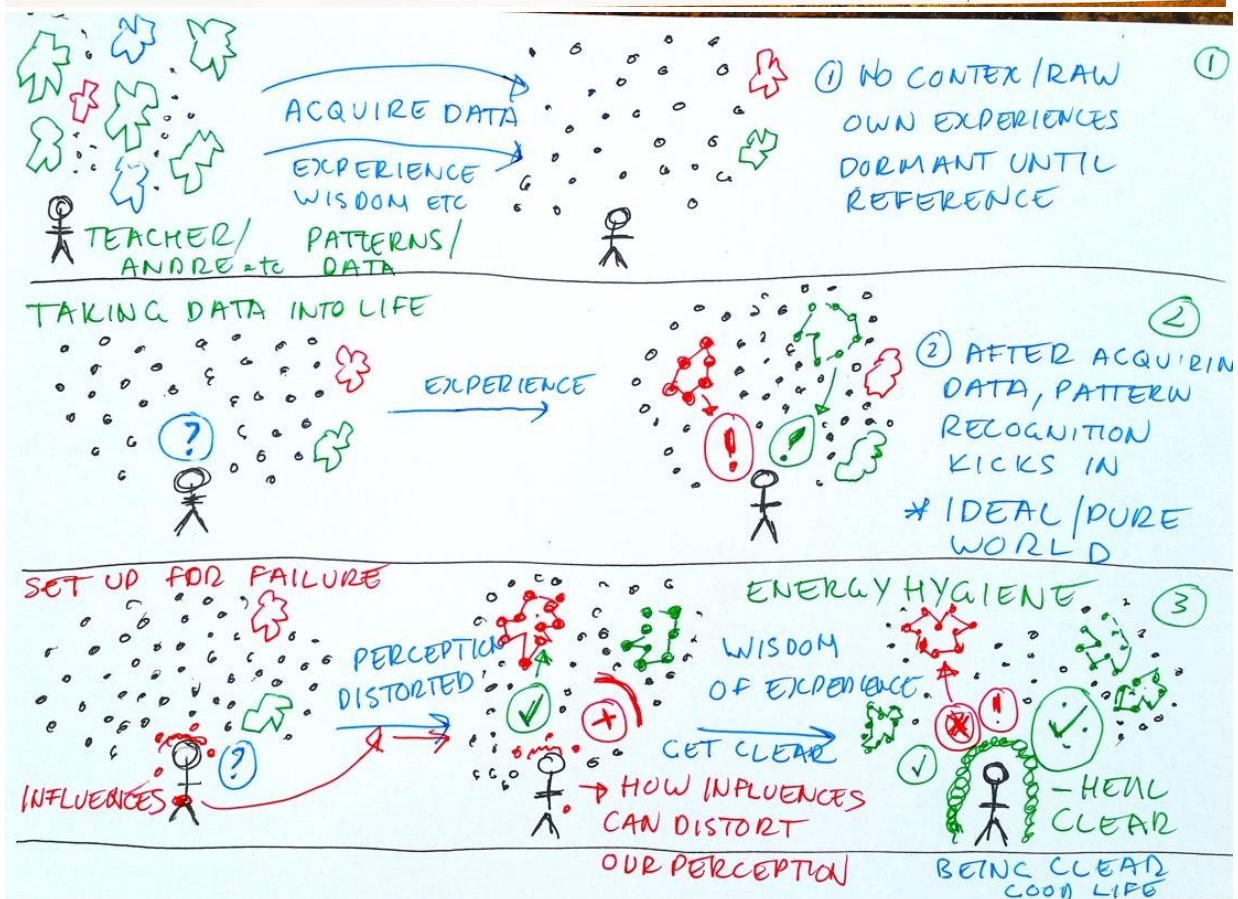 ①
ACQUIRE DATA
EXPERIENCE
WISDOM ETC
TEACHER/
ANDRE etc
PATTERNS/
DATA
① NO CONTEX/RAW
OWN EXPERIENCES
DORMANT UNTIL
REFERENCE
TAKING DATA INTO LIFE
②
?
EXPERIENCE
!
② AFTER ACQUIRIN
DATA, PATTERN
RECOGNITION
KICKS IN
* IDEAL/PURE
WORLD
SET UP FOR FAILURE
?
INFLUENCES
PERCEPTION
DISTORTED
→ HOW INFLUENCES
CAN DISTORT
OUR PERCEPTION
ENERGY HYGIENE
③
WISDOM
OF EXPERIENCE
GET CLEAR
!
- HEAL
CLEAR
BEING CLEAR
GOOD LIFE